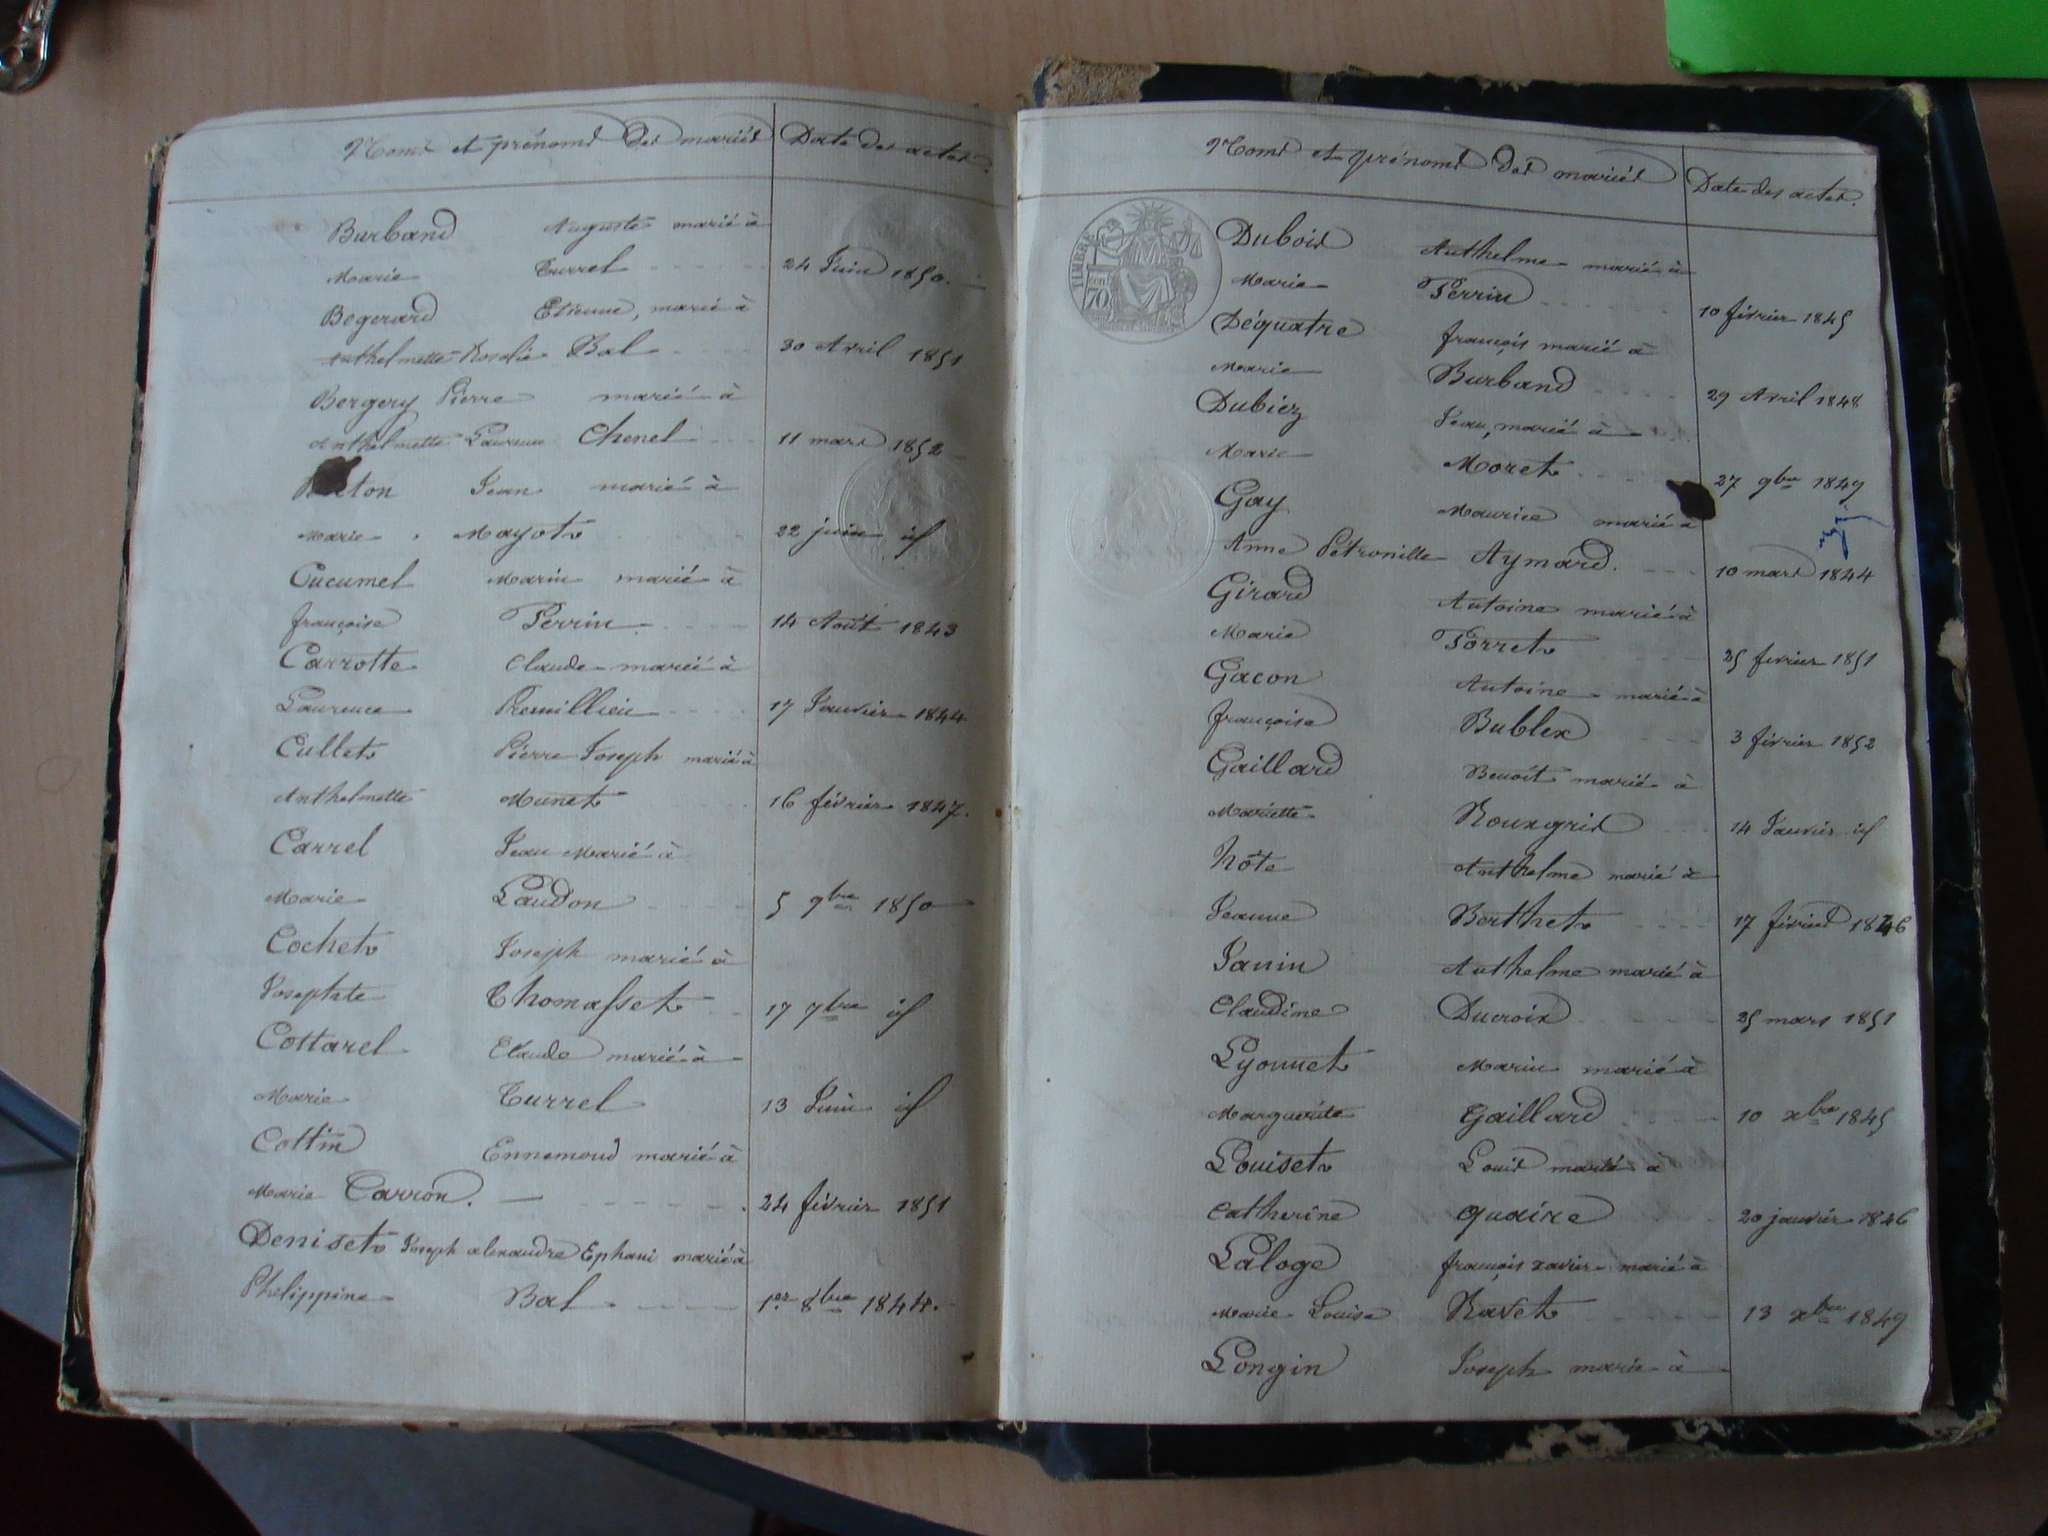 Noms et prénoms des mariés Date des actes.
Burband Auguste marié à
Marie Turrel 24 Juin 1850.
Begerard Etienne, marié à
Anthelmette Rosalie Bal 30 Avril 1851
Bergery Pierre marié à
Anthelmette Laurence Chenel 11 mars 1852
Jean marié à
Marie Mayot 22 juin id
Cucumel Marin marié à
françoise Perrin 14 Août 1843
Carrotte Claude marié à
Laurence Remillieu 17 Janvier 1844
Cullet Pierre Joseph marié à
Anthelmette Munet 16 février 1847.
Carrel Jean Marié à
Marie Laudon 5 9bre 1850
Cochet Joseph marié à
Josephte Thomasset 17 7bre id
Cottarel Claude marié à
Marie Turrel 13 Juin id
Cottin Ennemond marié à
Marie Carron. 24 février 1851
Deniset Joseph alexandre Ephani marié à
Philippine Bal 1er 8bre 1844.
Noms et prénoms des mariés Date des actes.
TIMBRE
70
Dubois Anthelme marié à
Marie Perrin 10 février 1845
Déquatre françois marié à
Marie Burband 29 Avril 1848
Dubiez Jean, marié à
Marie Moret 27 9bre 1849
Gay Maurice marié à
Anne Pétronille Aymard. 10 mars 1844
Girard Antoine marié à
Marie Porret 25 fevrier 1851
Gacon Antoine marié à
françoise Bublex 3 février 1852
Gaillard Benoît marié à
Mariette Rouxgrid 14 Janvier id
hôte Anthelme marié à
Jeanne Berthet 17 février 1846
Janin Anthelme marié à
Claudine Ducroix 25 mars 1851
Lyonnet Marin marié à
Marguerite Gaillard 10 xbre 1845
Louiset Louis marié à
Catherine quaire 20 janvier 1846
Laloge françois xavier marié à
Marie Louise Ravet 13 xbre 1849
Longin Joseph marié à